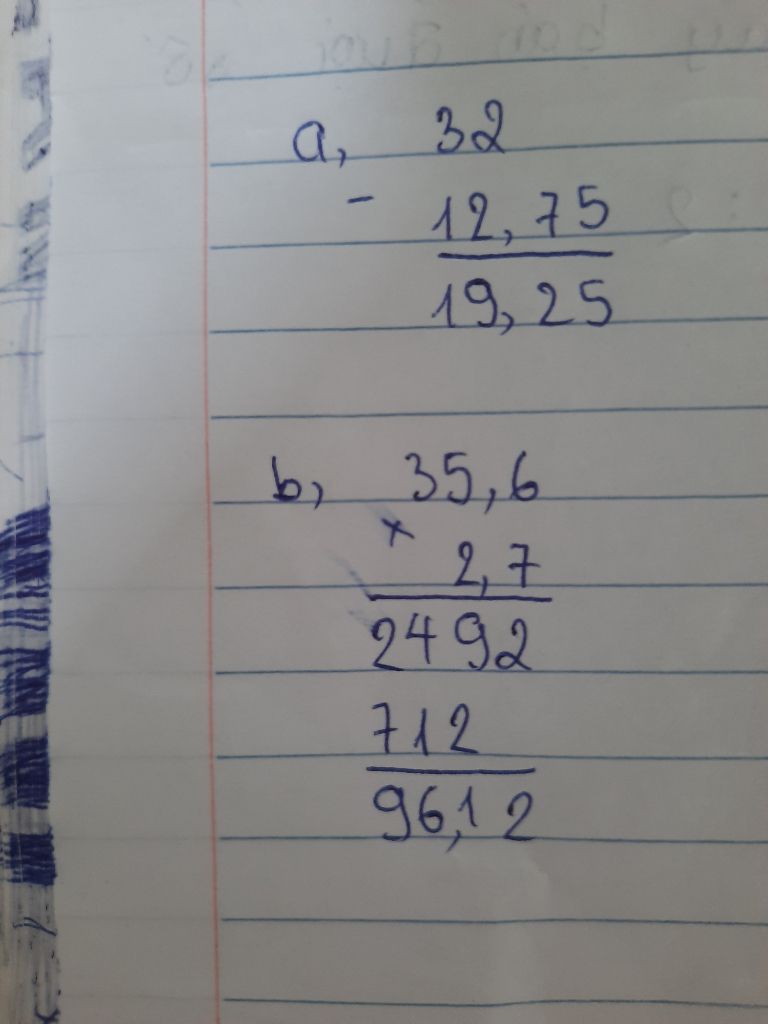 a, 32
- 12,75
19,25
b, 35,6
×
2,7
2492
712
96,12